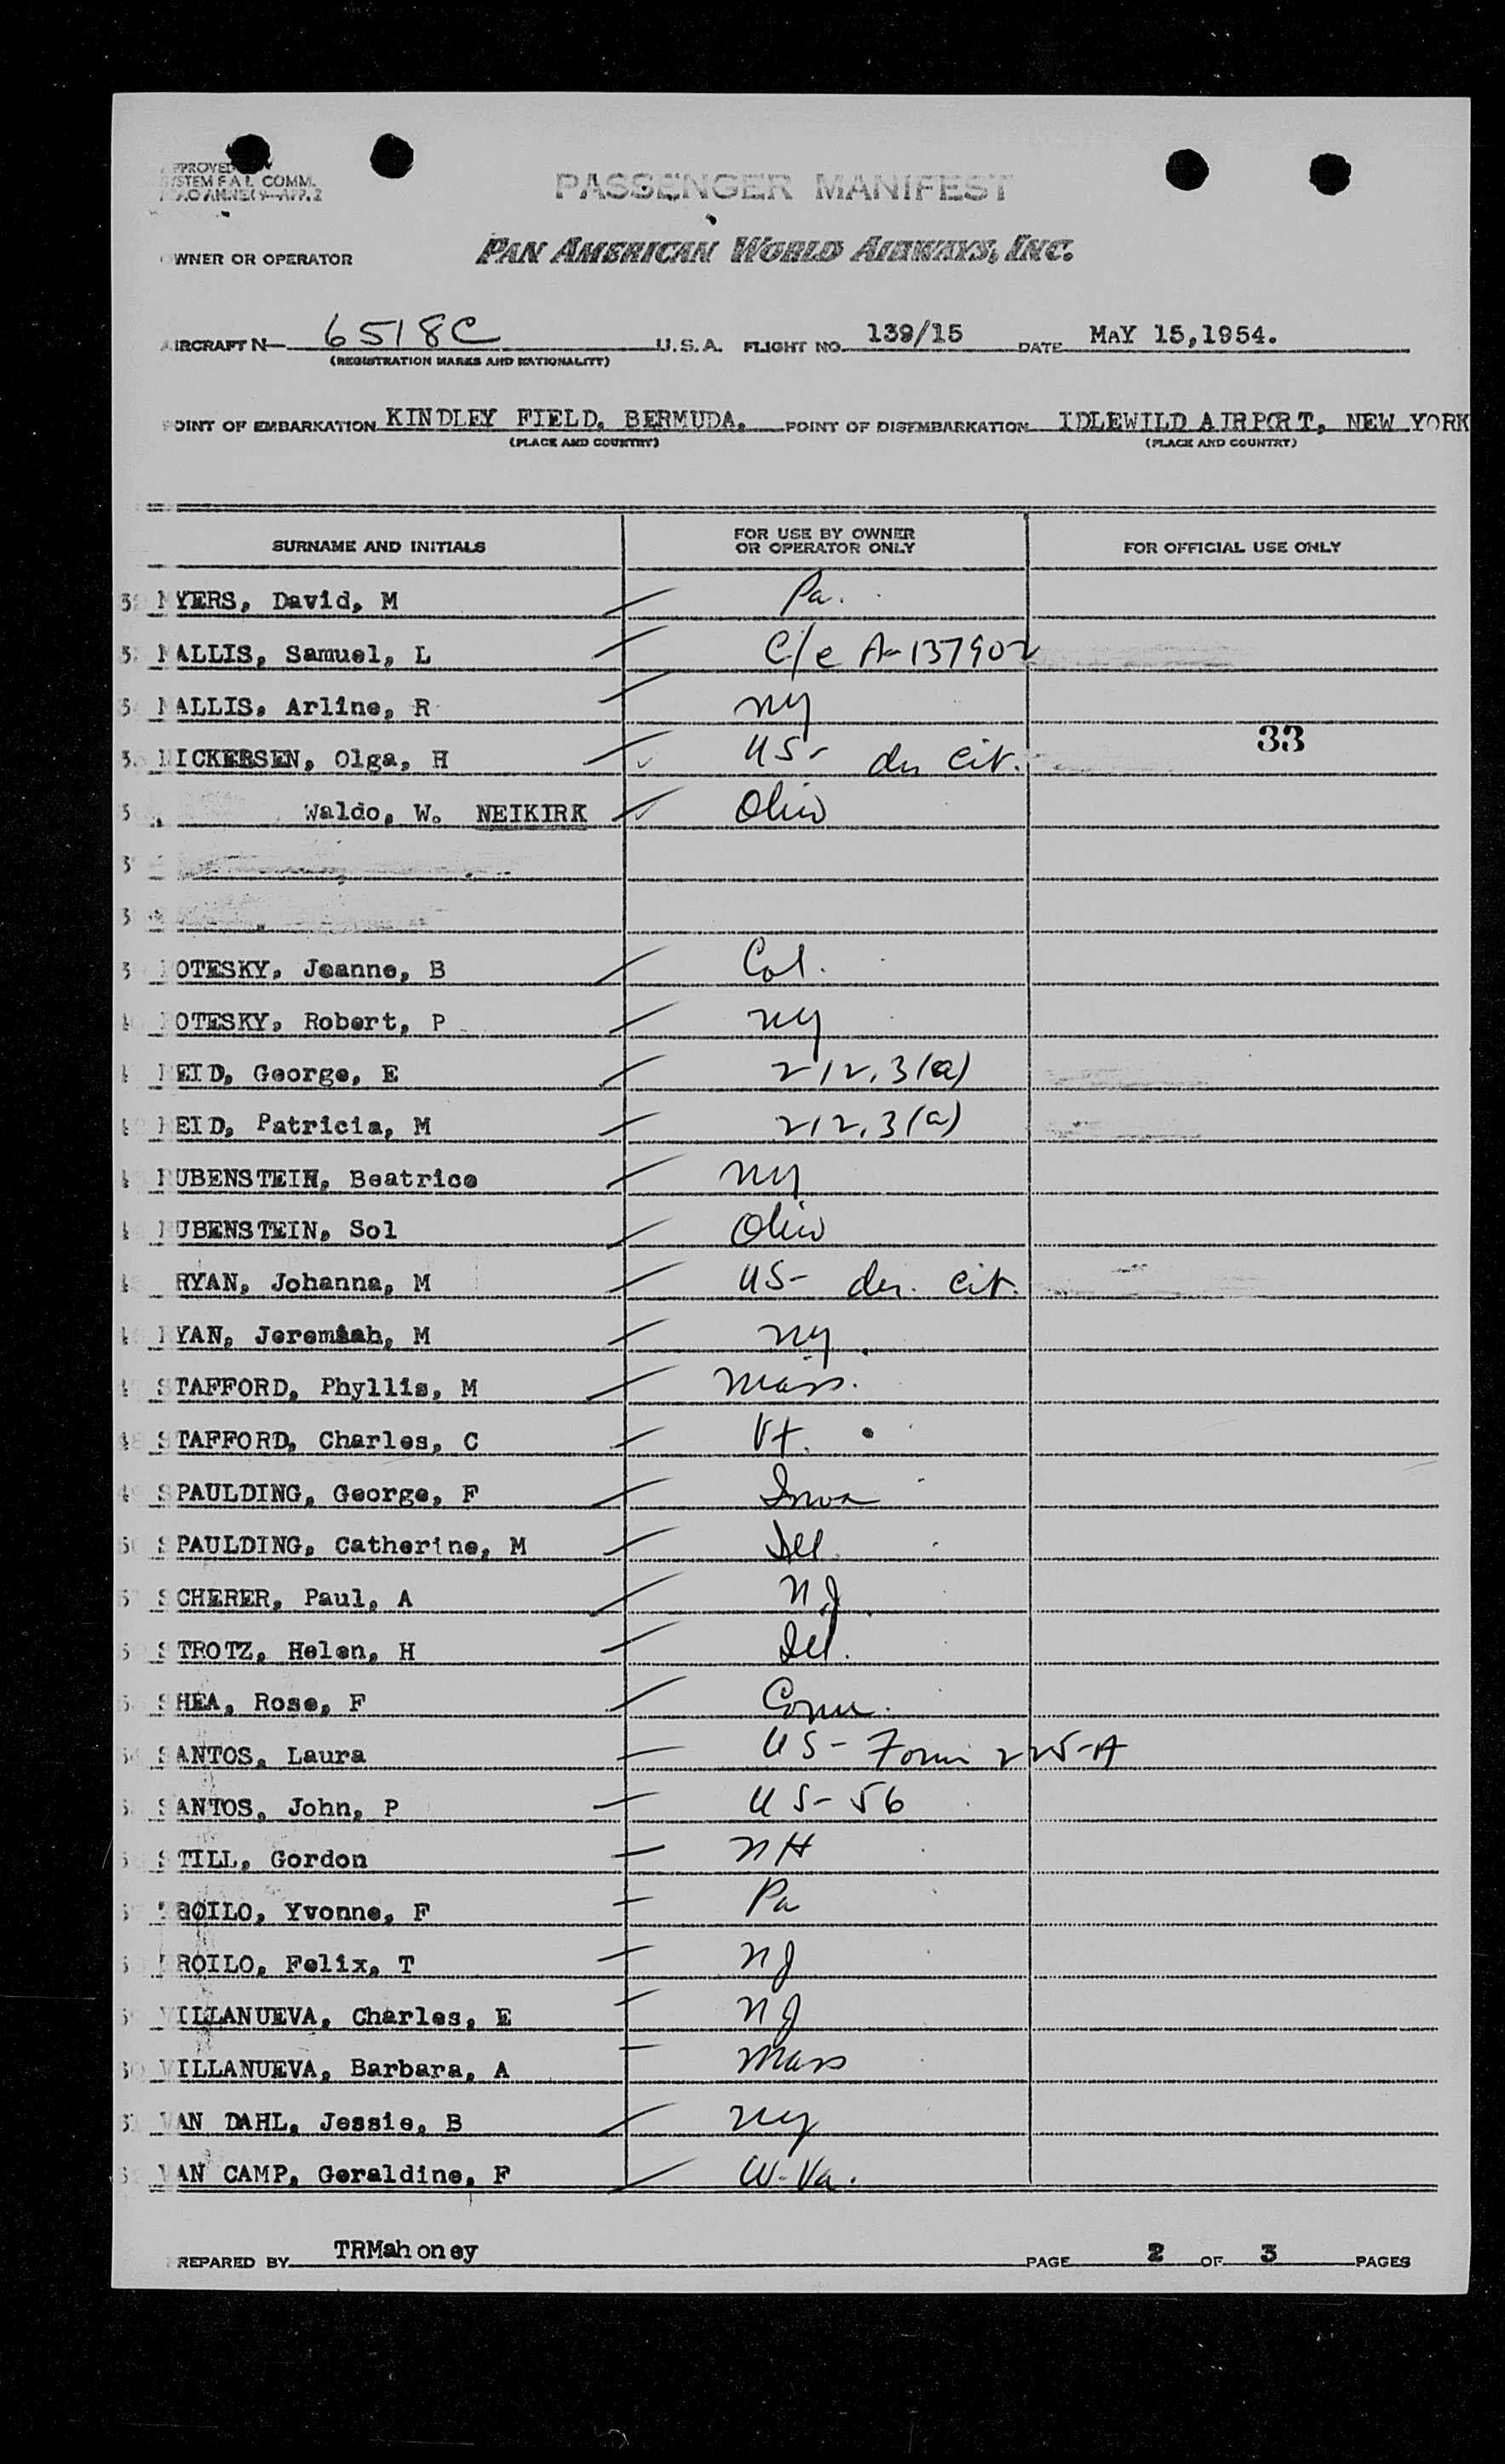 PPROVED
YSTEM F A L COMM.
PASSENGER MANIFEST
PAN AMERICAN WORLD AIRWAYS, INC.
WNER OR OPERATOR
IRCRAFT N— 6518C U.S.A. FLIGHT NO. 139/15 DATE MAY 15,1954.
(REGISTRATION MARKS AND NATIONALITY)
OINT OF EMBARKATION KINDLEY FIELD, BERMUDA. POINT OF DISEMBARKATION IDLEWILD AIRPORT, NEW YORK
(PLACE AND COUNTRY) (PLACE AND COUNTRY)
SURNAME AND INITIALS FOR USE BY OWNER OR OPERATOR ONLY FOR OFFICIAL USE ONLY
MYERS, David, M Pa.
NALLIS, Samuel, L C/e A-137902
NALLIS, Arline, R NY
33
NICKERSEN, Olga, H US- der cit.
Waldo, W. NEIKIRK Ohio
POTESKY, Jeanne, B Col.
POTESKY, Robert, P NY
REID, George, E 212.3(a)
REID, Patricia, M 212.3(a)
RUBENSTEIN, Beatrice NY
RUBENSTEIN, Sol Ohio
RYAN, Johanna, M US- der. cit.
RYAN, Jeremiah, M NY
STAFFORD, Phyllis, M Mass.
STAFFORD, Charles, C Vt.
SPAULDING, George, F Iowa
SPAULDING, Catherine, M Ill.
SCHERER, Paul, A NJ.
STROTZ, Helen, H Ill.
SHEA, Rose, F Conn.
SANTOS, Laura US- Form 225-A
SANTOS, John, P US-56
STILL, Gordon NH
TROILO, Yvonne, F Pa
TROILO, Felix, T NJ
VILLANUEVA, Charles, E NJ
VILLANUEVA, Barbara, A Mass
VAN DAHL, Jessie, B NY
VAN CAMP, Geraldine, F W-Va.
REPARED BY TRMahoney PAGE 2 OF 3 PAGES